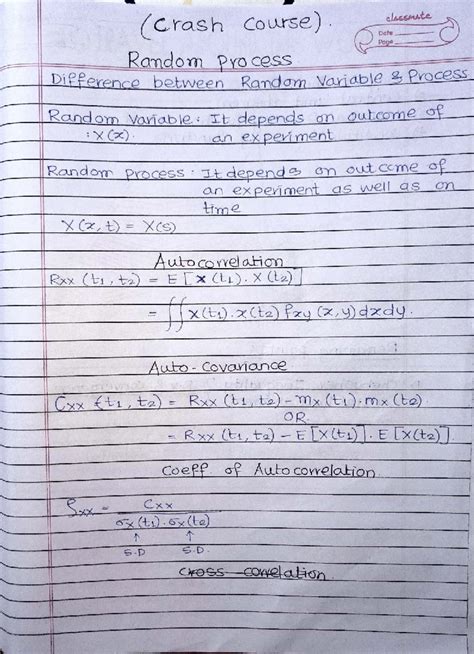 (Crash Course).
classmate
Date
Page
Random Process
Difference between Random Variable & Process
Random Variable: It depends on outcome of
: X(x). an experiment
Random Process: It depends on outcome of
an experiment as well as on
time
X(x,t) = X(s)
Autocorrelation
Rxx (t1, t2) = E [X(t1). X(t2)]
= ∬ x(t1). x(t2) fxy (x,y) dxdy.
Auto-Covariance
Cxx (t1, t2) = Rxx (t1, t2) - mx(t1). mx(t2).
OR.
= Rxx (t1, t2) - E[X(t1)]. E[X(t2)]
Coeff of Autocorrelation.
ρxx = Cxx
σx(t1). σx(t2)
↑ ↑
S.D S.D.
Cross-correlation.